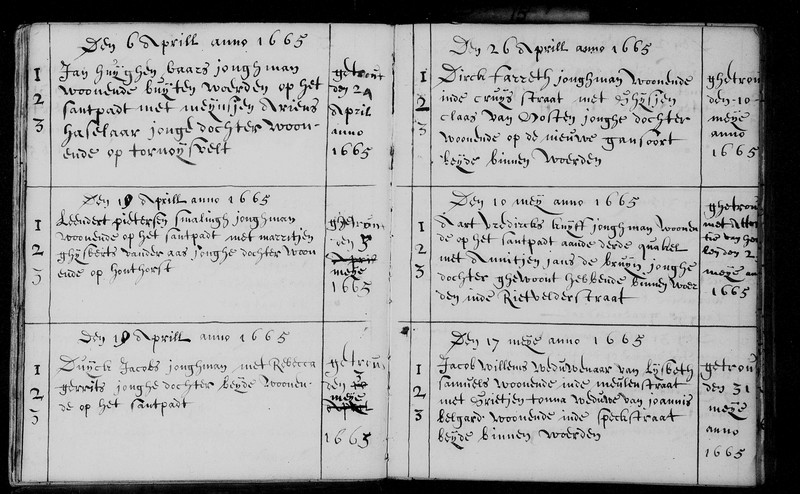 Den 6 Aprill anno 1665
1
2
3
Jan huijghen baars jonghman
woonende buijten woerden op het
santpadt met meijnsjen Ariens
haselaar jonge dochter woon-
ende op tornoijsvelt
getrout
den 24
April
anno
1665
Den 19 Aprill anno 1665
1
2
3
Leendert pietersen smalingh jonghman
woonende op het santpadt met marritjen
ghijsberts vander aas jonghe dochter woon
ende op honthorst
ghetrou
den 3
April
meije
1665
Den 19 Aprill anno 1665
1
2
3
Duijck Jacobs jonghman met Rebecca
gerrits jonghe dochter beijde woonen-
de op het santpadt
getrou
den 3
meije
1665
Den 26 Aprill anno 1665
1
2
3
Dirck farreth jonghman woonende
inde cruijs straat met Ghijsjen
claas van Oosten jonghe dochter
woonende op de nieuwe gansoort
beijde binnen woerden
ghetrou
den 10
meije
anno
1665
Den 10 meij anno 1665
1
2
3
Aart vredricks knijff jonghman woonen
de op het santpadt aande derde quakel
met Annitjen jans de bruijn jonghe
dochter ghewoont hebbende binnen woer
den inde Rietvelderstraat
ghetrou
met Atte
tie van
den 2
meije
1665
Den 17 meije anno 1665
1
2
3
Jacob willems weduwenaar van lijsbeth
samuels woonende inde meulenstraat
met Grietjen tonna weduwe van joannis
belgard woonende inde speckstraat
beijde binnen woerden
getrou
den 31
meije
anno
1665